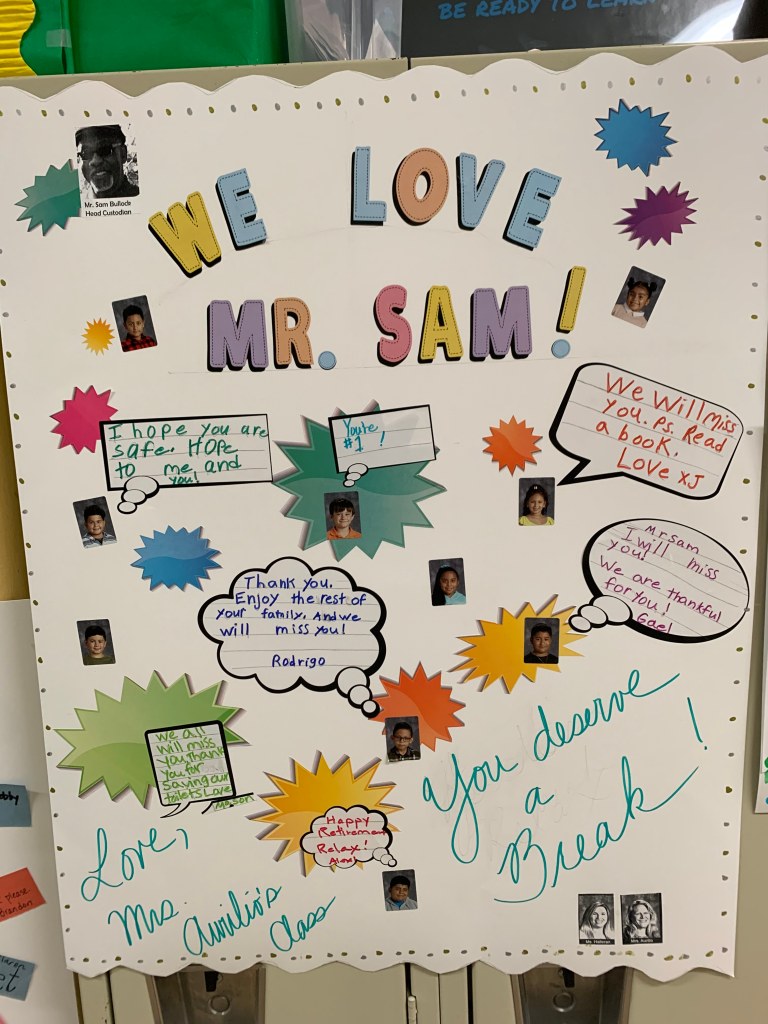 BE READY TO LEARN
Mr. Sam Bullock
Head Custodian
WE LOVE
MR. SAM!
I hope you are
safe. Hope
to me and
you!
You're
#1 !
We Will miss
you. Ps. Read
a book.
Love XJ
Mr sam
I will miss
you!
We are thankful
for you!
Gael
Thank you.
Enjoy the rest of
your family. And we
will miss you!
Rodrigo
we all
will miss
you, thank
you for
saving our
toilets Love
Mason
Happy
Retirement
Relax!
You deserve
a
Break!
Love,
Mrs. Aurilio's
Class
please
Brandon